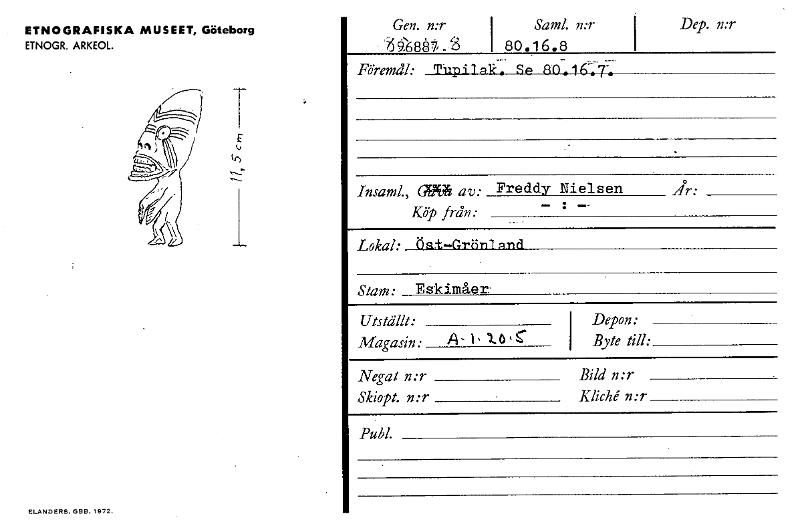 ETNOGRAFISKA MUSEET, Göteborg
ETNOGR. ARKEOL.
11,5 cm
ELANDERS. GBB. 1972.
Gen. n:r Saml. n:r Dep. n:r
80.16.8
Föremål: Tupilak. Se 80.16.7.
Insaml., av: Freddy Nielsen År:
Köp från: - : -
Lokal: Öst-Grönland
Stam: Eskimåer
Utställt: Depon:
Magasin: A.1.20.5 Byte till:
Negat n:r Bild n:r
Skiopt. n:r Kliché n:r
Publ.